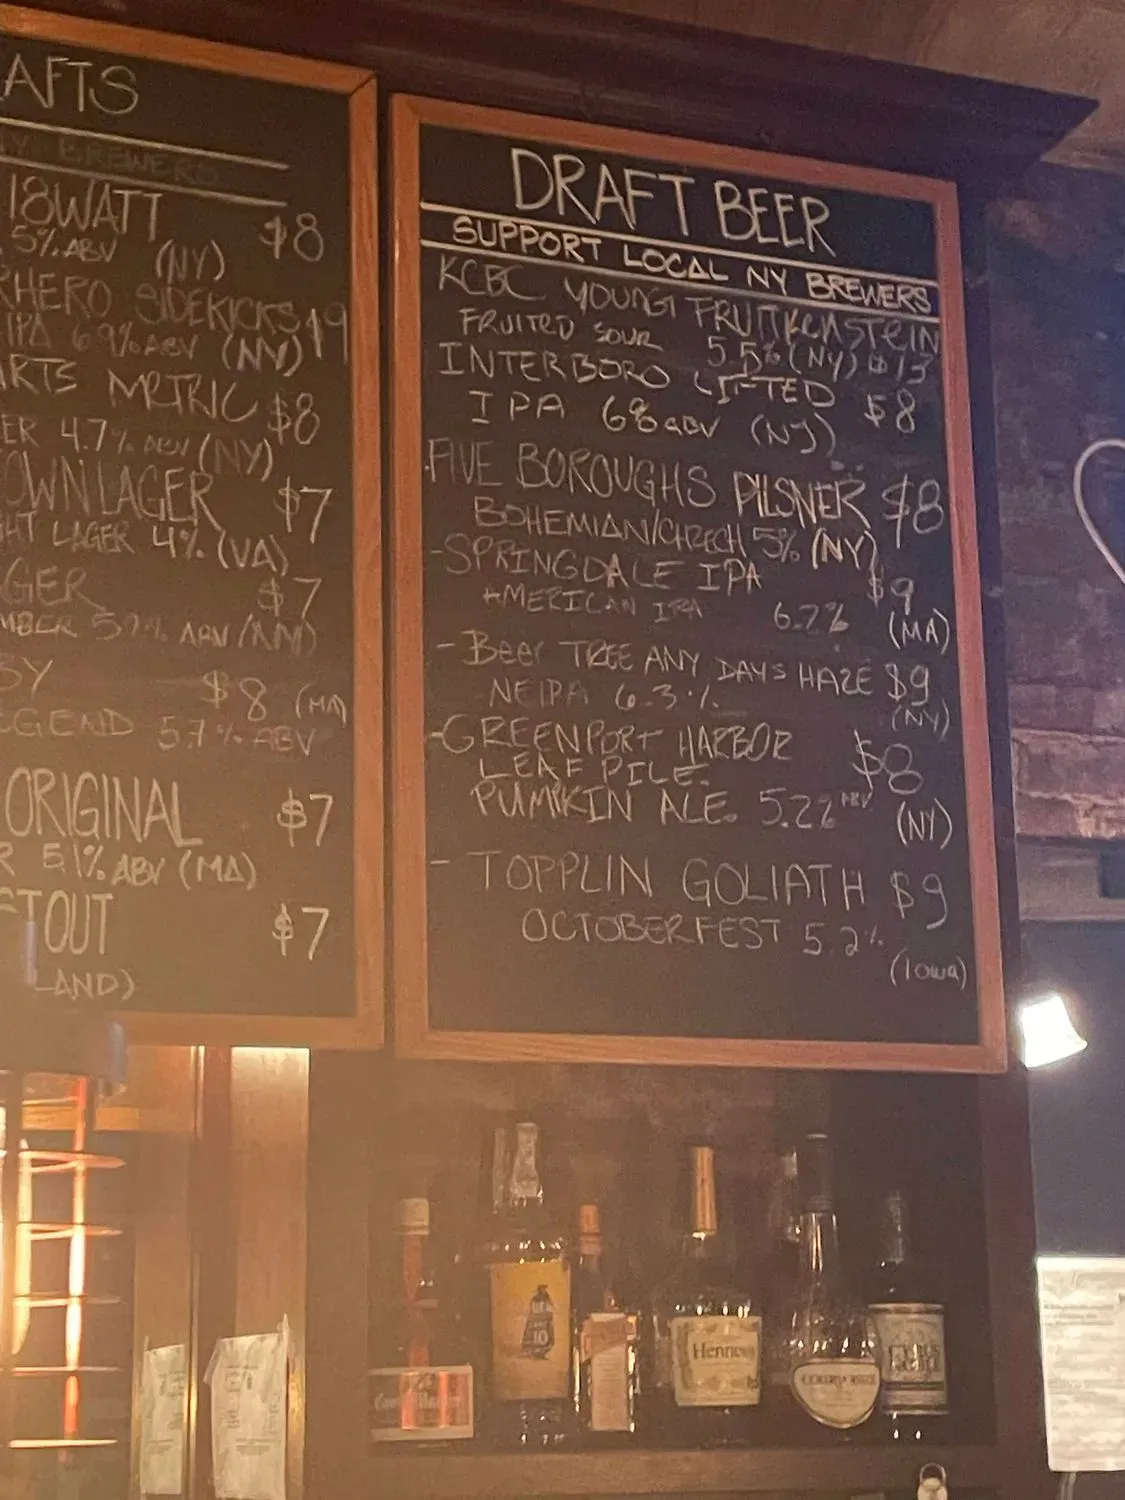 AFTS
Y BREWERS
18WATT $8
5% ABV (NY)
RHERO SIDEKICKS $9
IPA 6.9% ABV (NY)
ARTS METRIC $8
ER 4.7% ABV (NY)
OWN LAGER $7
HT LAGER 4% (VA)
GER $7
MBER 5.9% ABV
SY $8 (MA)
EGEND 5.7% ABV
ORIGINAL $7
R 5.1% ABV (MA)
STOUT $7
LAND)
DRAFT BEER
SUPPORT LOCAL NY BREWERS
KCBC YOUNG FRUITKENSTEIN
FRUITED SOUR 5.5% (NY) $13
INTERBORO LIFTED $8
IPA 6% ABV (NY)
FIVE BOROUGHS PILSNER $8
BOHEMIAN/CHZECH 5% (NY)
-SPRINGDALE IPA $9
AMERICAN IPA 6.2% (MA)
- Beer TREE ANY DAYS HAZE $9
NEIPA 6.3% (NY)
-GREENPORT HARBOR $8
LEAF PILE.
PUMKIN ALE. 5.2% ABV (NY)
- TOPPLIN GOLIATH $9
OCTOBERFEST 5.2%
(Iowa)
10
Hennessy
COURVOISIER